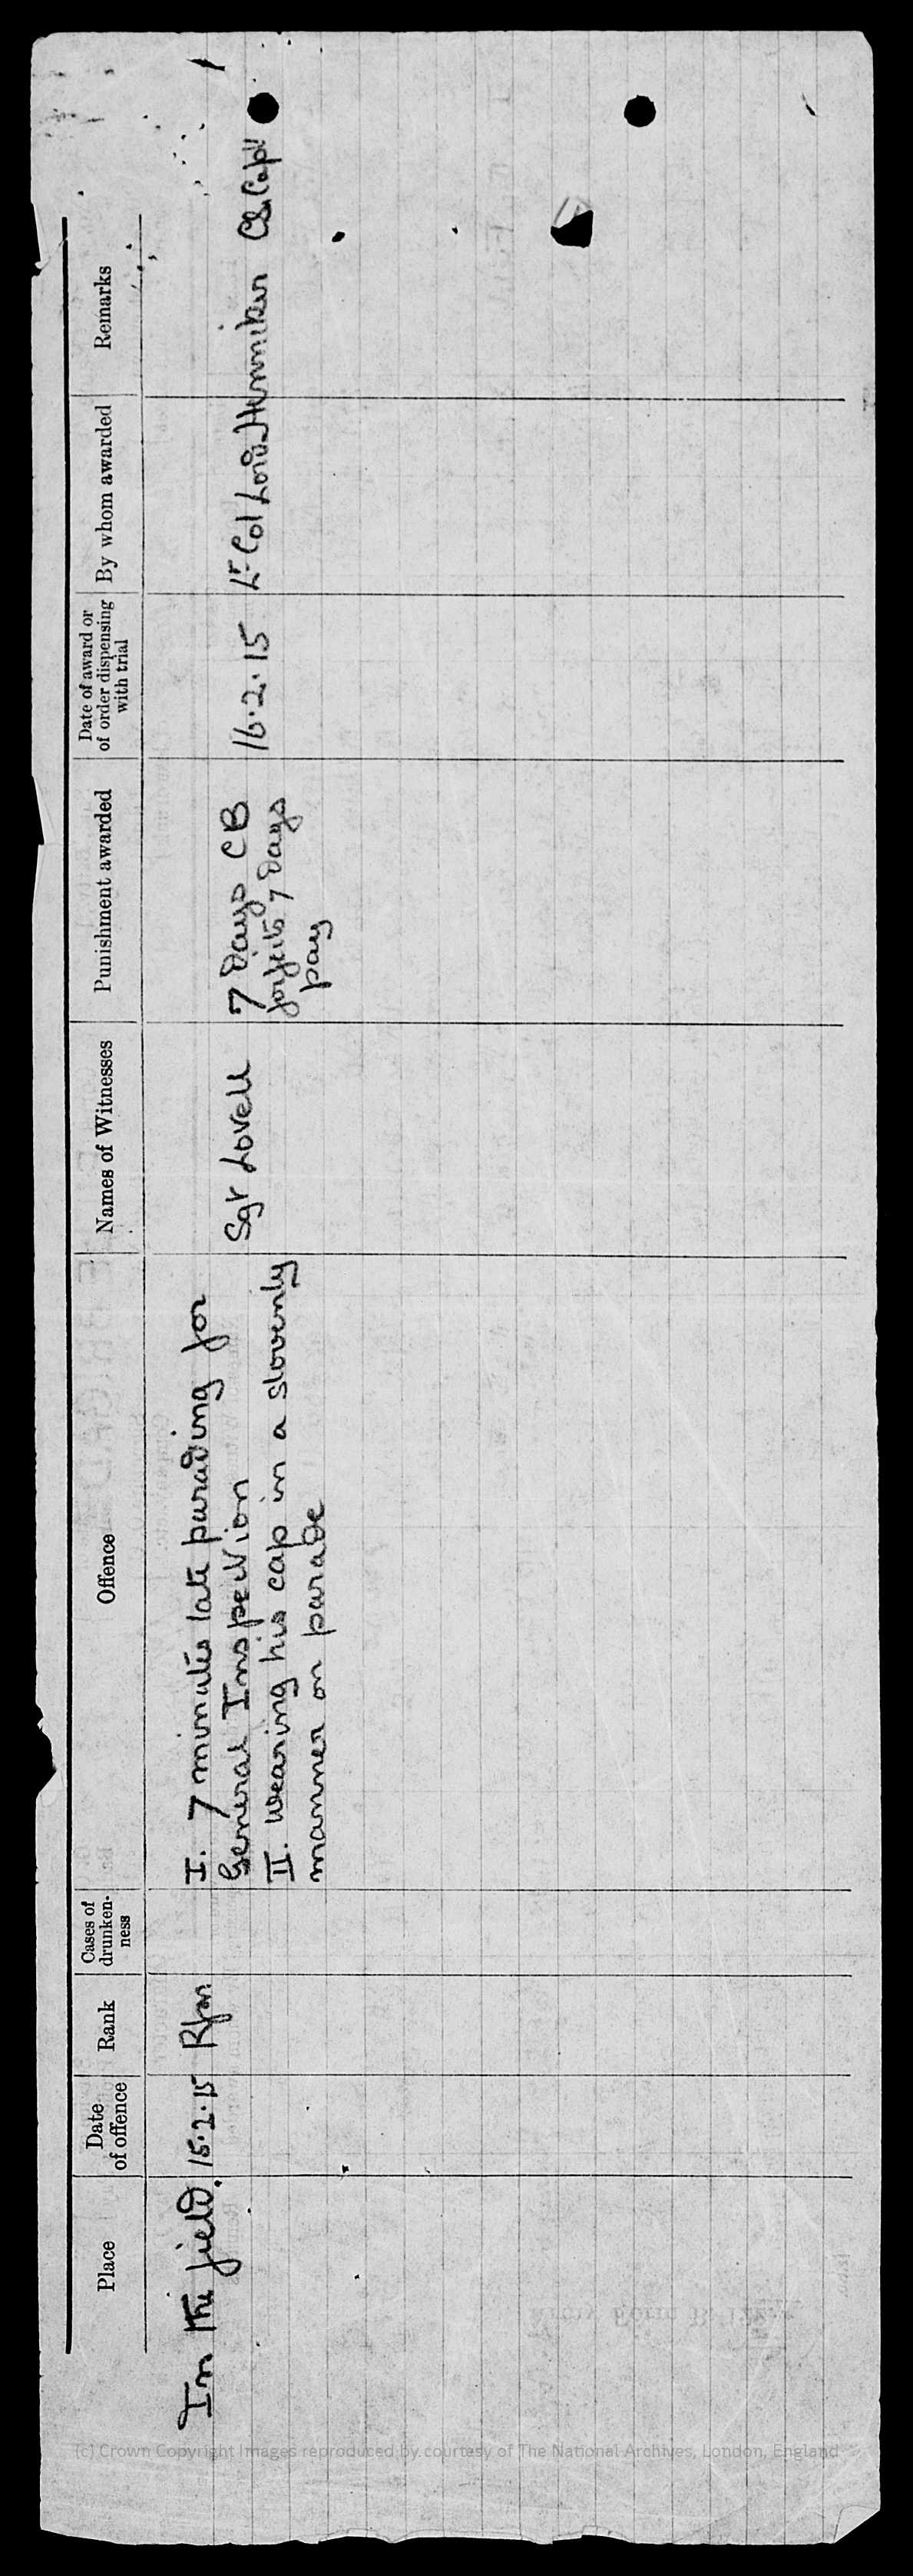 Place
Date
of offence
Rank
Cases of
drunken-
ness
Offence
Names of Witnesses
Punishment awarded
Date of award or
of order dispensing
with trial
By whom awarded
Remarks
In the field. 15.2.15 Rfm.
I. 7 minutes late parading for
General Inspection
II. Wearing his cap in a slovenly
manner on parade
Sgt Lovell
7 Days CB
forfeits 7 Days
pay
16.2.15
Lt Col Lord Henniker
Capt
(c) Crown Copyright Images reproduced by courtesy of The National Archives, London, England